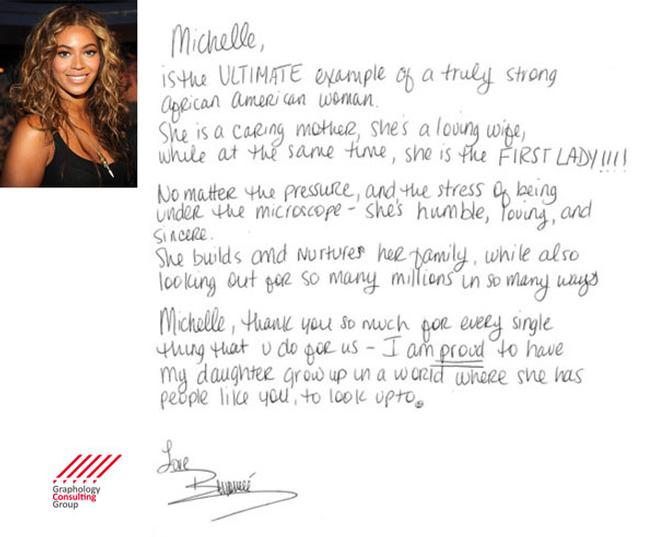 Michelle,
is the ULTIMATE example of a truly strong
african american woman.
She is a caring mother, she's a loving wife,
while at the same time, she is the FIRST LADY!!!!
No matter the pressure, and the stress of being
under the microscope - she's humble, loving, and
sincere.
She builds and nurtures her family, while also
looking out for so many millions in so many ways
Michelle, thank you so much for every single
thing that u do for us - I am proud to have
my daughter grow up in a world where she has
people like you, to look up to.
Love
Beyoncé
Graphology
Consulting
Group